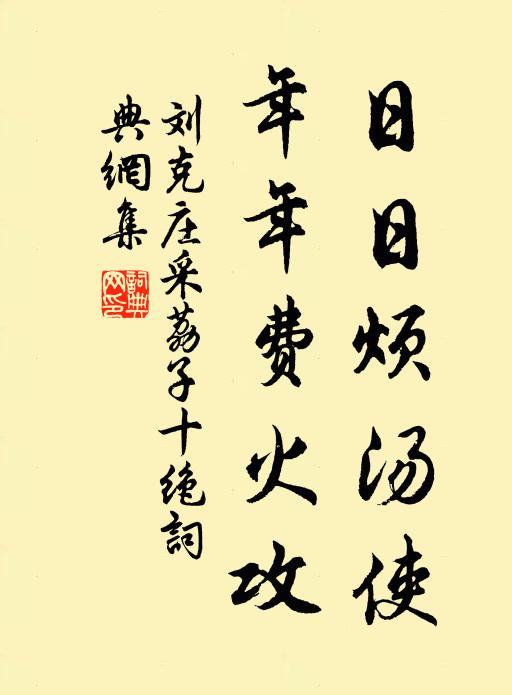 日日烦汤使
年年费火攻
刘克庄采荔子十绝词
典網集
詞典
网印